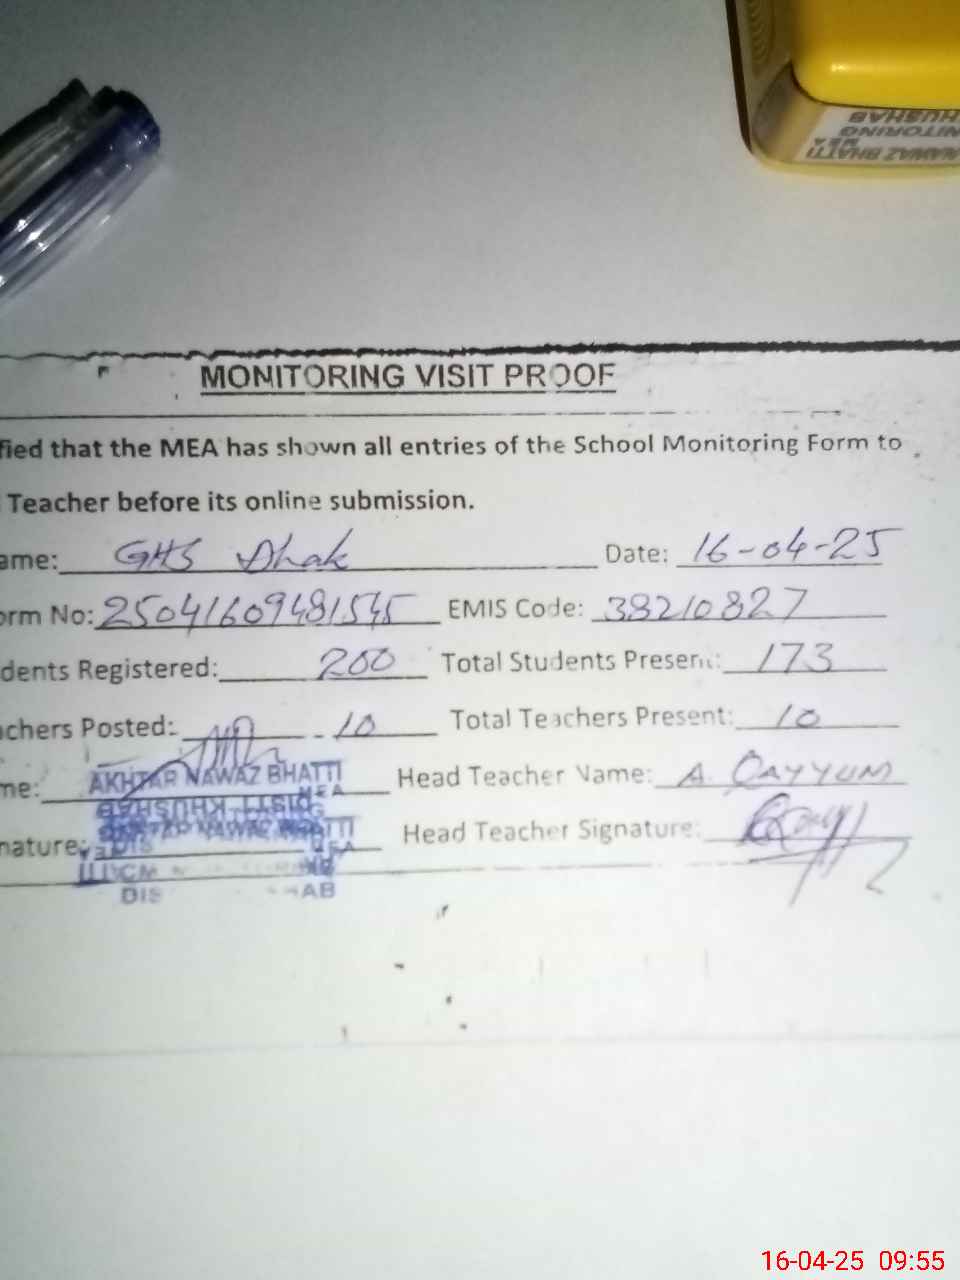 NAWAZ BHATTI
MEA
NITORING
KHUSHAB
MONITORING VISIT PROOF
fied that the MEA has shown all entries of the School Monitoring Form to
Teacher before its online submission.
ame: GHS Dhak Date: 16-04-25
orm No: 25041609481545 EMIS Code: 38210827
dents Registered: 200 Total Students Present: 173
achers Posted: 10 Total Teachers Present: 10
me: AKHTAR NAWAZ BHATTI Head Teacher Name: A. QAYYUM
MEA
DISTT-KHUSHAB
nature: Head Teacher Signature:
DIS HAB
16-04-25 09:55